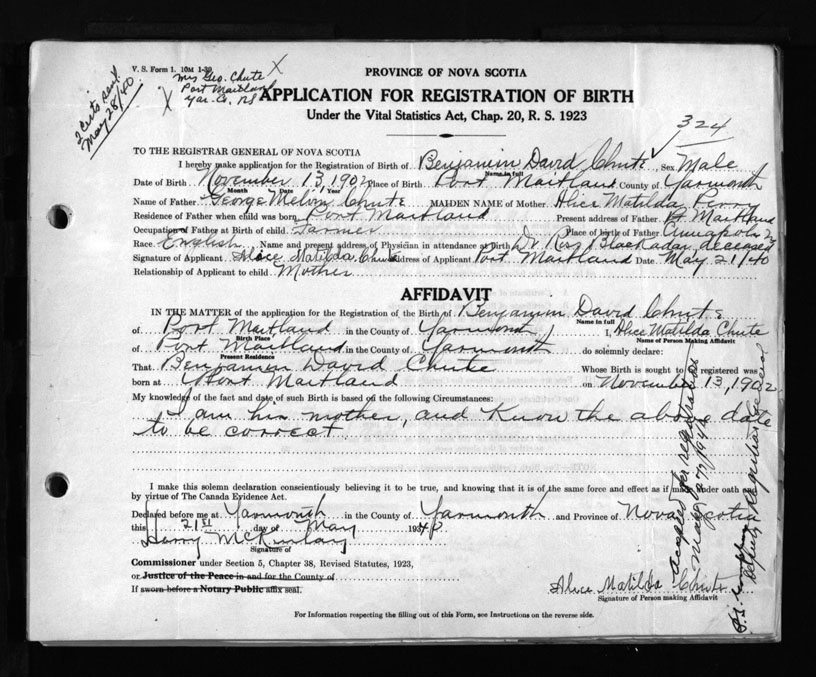 V. S. Form 1. 10M 1-39
Mrs Geo. Chute X
Port Maitland
X Yar. Co. NS
2 Certs sent
May 28/40
PROVINCE OF NOVA SCOTIA
APPLICATION FOR REGISTRATION OF BIRTH
Under the Vital Statistics Act, Chap. 20, R. S. 1923
324
TO THE REGISTRAR GENERAL OF NOVA SCOTIA
I hereby make application for the Registration of Birth of Benjamin David Chute, Sex Male
Name in full
Date of Birth November 13, 1902 Place of Birth Port Maitland County of Yarmouth
Month Date Year
Name of Father George Melvin Chute MAIDEN NAME of Mother Alice Matilda Perry
Residence of Father when child was born Port Maitland Present address of Father Pt Maitland
Occupation of Father at Birth of child Farmer Place of birth of Father Annapolis
Race English Name and present address of Physician in attendance at Birth Dr Ross Blackadar, deceased
Signature of Applicant Alice Matilda Chute Address of Applicant Port Maitland Date May 21/40
Relationship of Applicant to child Mother
AFFIDAVIT
IN THE MATTER of the application for the Registration of the Birth of Benjamin David Chute
Name in full
of Port Maitland in the County of Yarmouth I, Alice Matilda Chute
Birth Place Name of Person Making Affidavit
of Port Maitland in the County of Yarmouth do solemnly declare:
Present Residence
That Benjamin David Chute Whose Birth is sought to be registered was
born at Port Maitland on November 13, 1902
My knowledge of the fact and date of such Birth is based on the following Circumstances:
I am his mother, and know the above date
to be correct.
I make this solemn declaration conscientiously believing it to be true, and knowing that it is of the same force and effect as if made under oath and
by virtue of The Canada Evidence Act.
Declared before me at Yarmouth in the County of Yarmouth and Province of Nova Scotia
this 21st day of May 1940
Harry McKinlay
Signature of
Commissioner under Section 5, Chapter 38, Revised Statutes, 1923,
or Justice of the Peace in and for the County of
If sworn before a Notary Public affix seal.
Alice Matilda Chute
Signature of Person making Affidavit
Accepted for registration
Deputy Registrar General
For Information respecting the filling out of this Form, see Instructions on the reverse side.